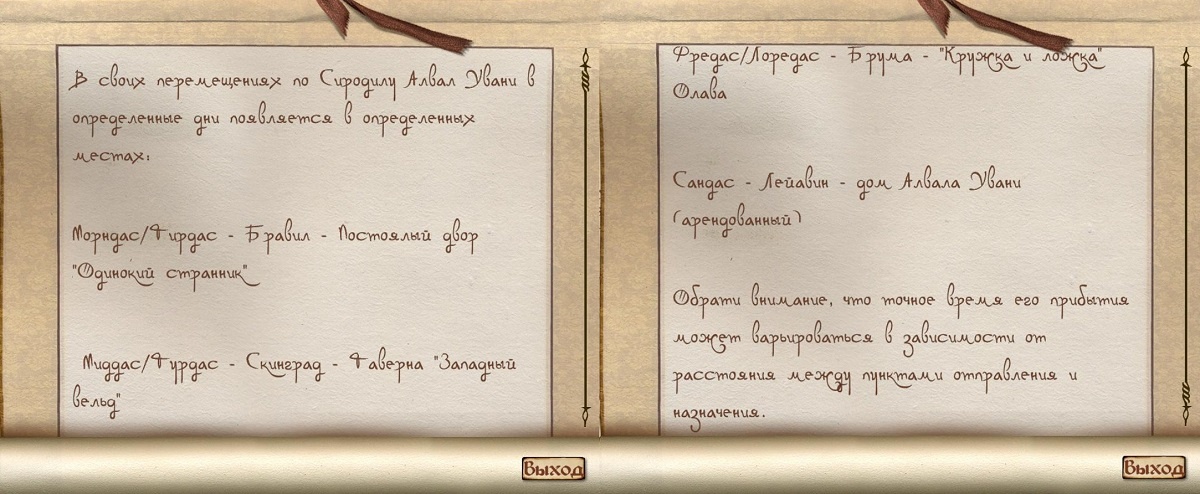 В своих перемещениях по Сиродилу Алвал Увани в
определенные дни появляется в определенных
местах:
Морндас/Тирдас - Бравил - Постоялый двор
"Одинокий странник"
Миддас/Турдас - Скинград - Таверна "Западный
вельд"
Выход
Фредас/Лоредас - Брума - "Кружка и ложка"
Олава
Сандас - Лейавин - дом Алвала Увани
(арендованный)
Обрати внимание, что точное время его прибытия
может варьироваться в зависимости от
расстояния между пунктами отправления и
назначения.
Выход